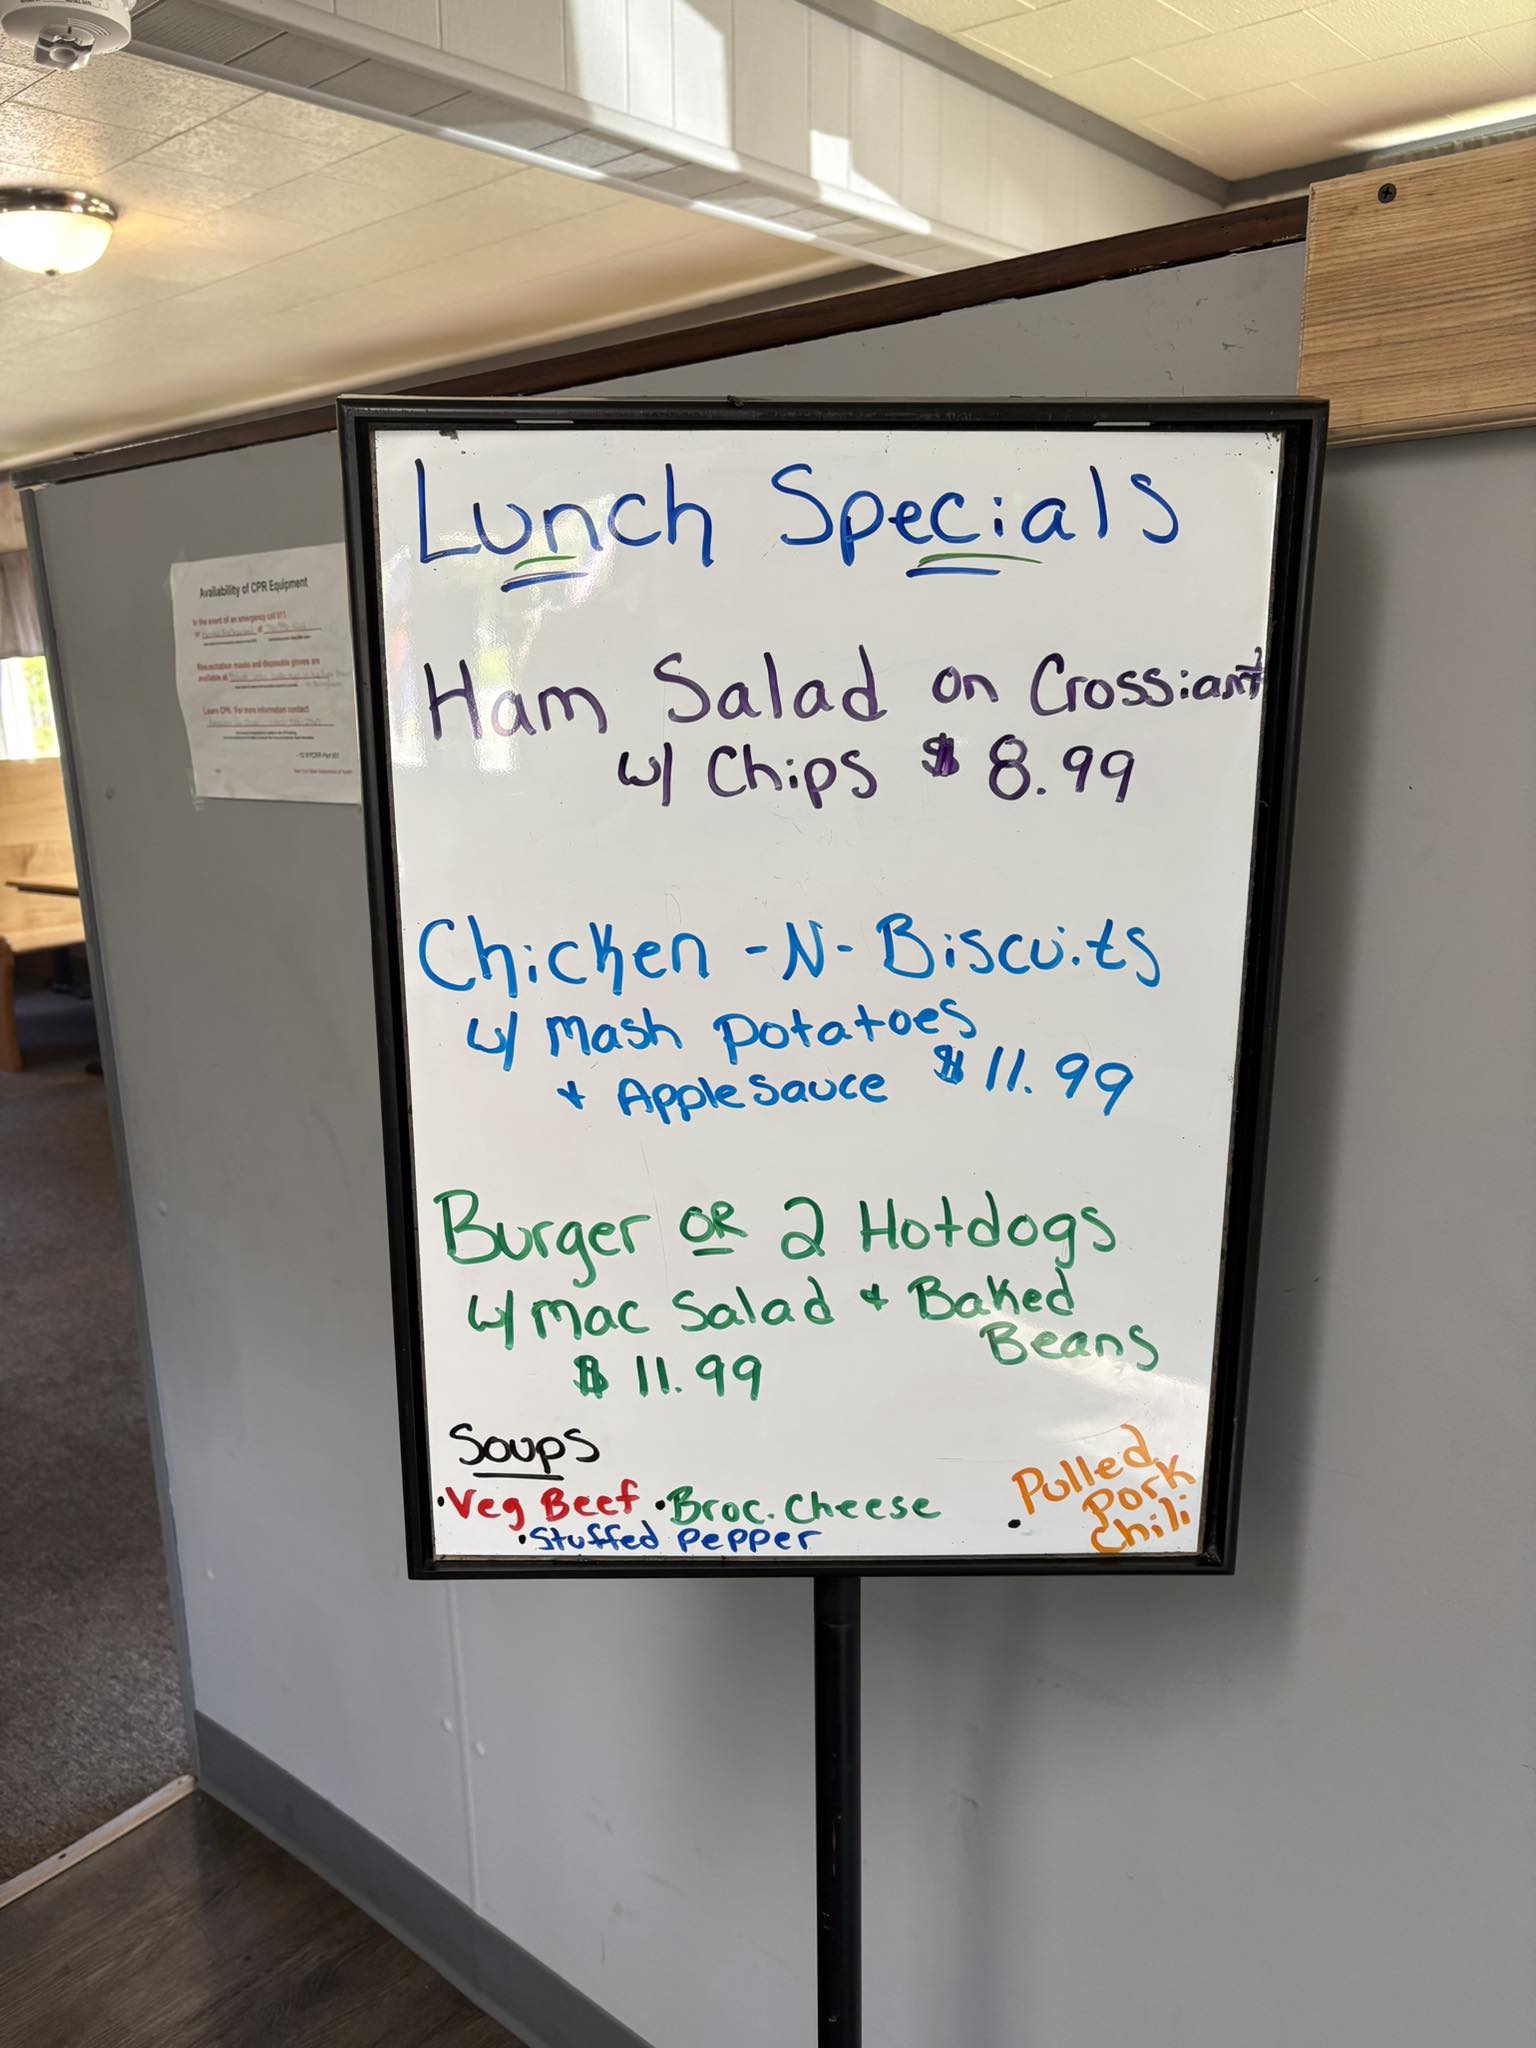 Availability of CPR Equipment
In the event of an emergency call 911
or
at
Resuscitation masks and disposable gloves are
available at
Learn CPR. For more information contact
Lunch Specials
Ham Salad on Crossiant
w/ Chips $ 8.99
Chicken -N- Biscuits
w/ Mash potatoes
+ Applesauce $ 11.99
Burger OR 2 Hotdogs
w/ Mac Salad + Baked
Beans
$ 11.99
Soups
•Veg Beef •Broc. Cheese
•Stuffed Pepper
• Pulled
Pork
Chili